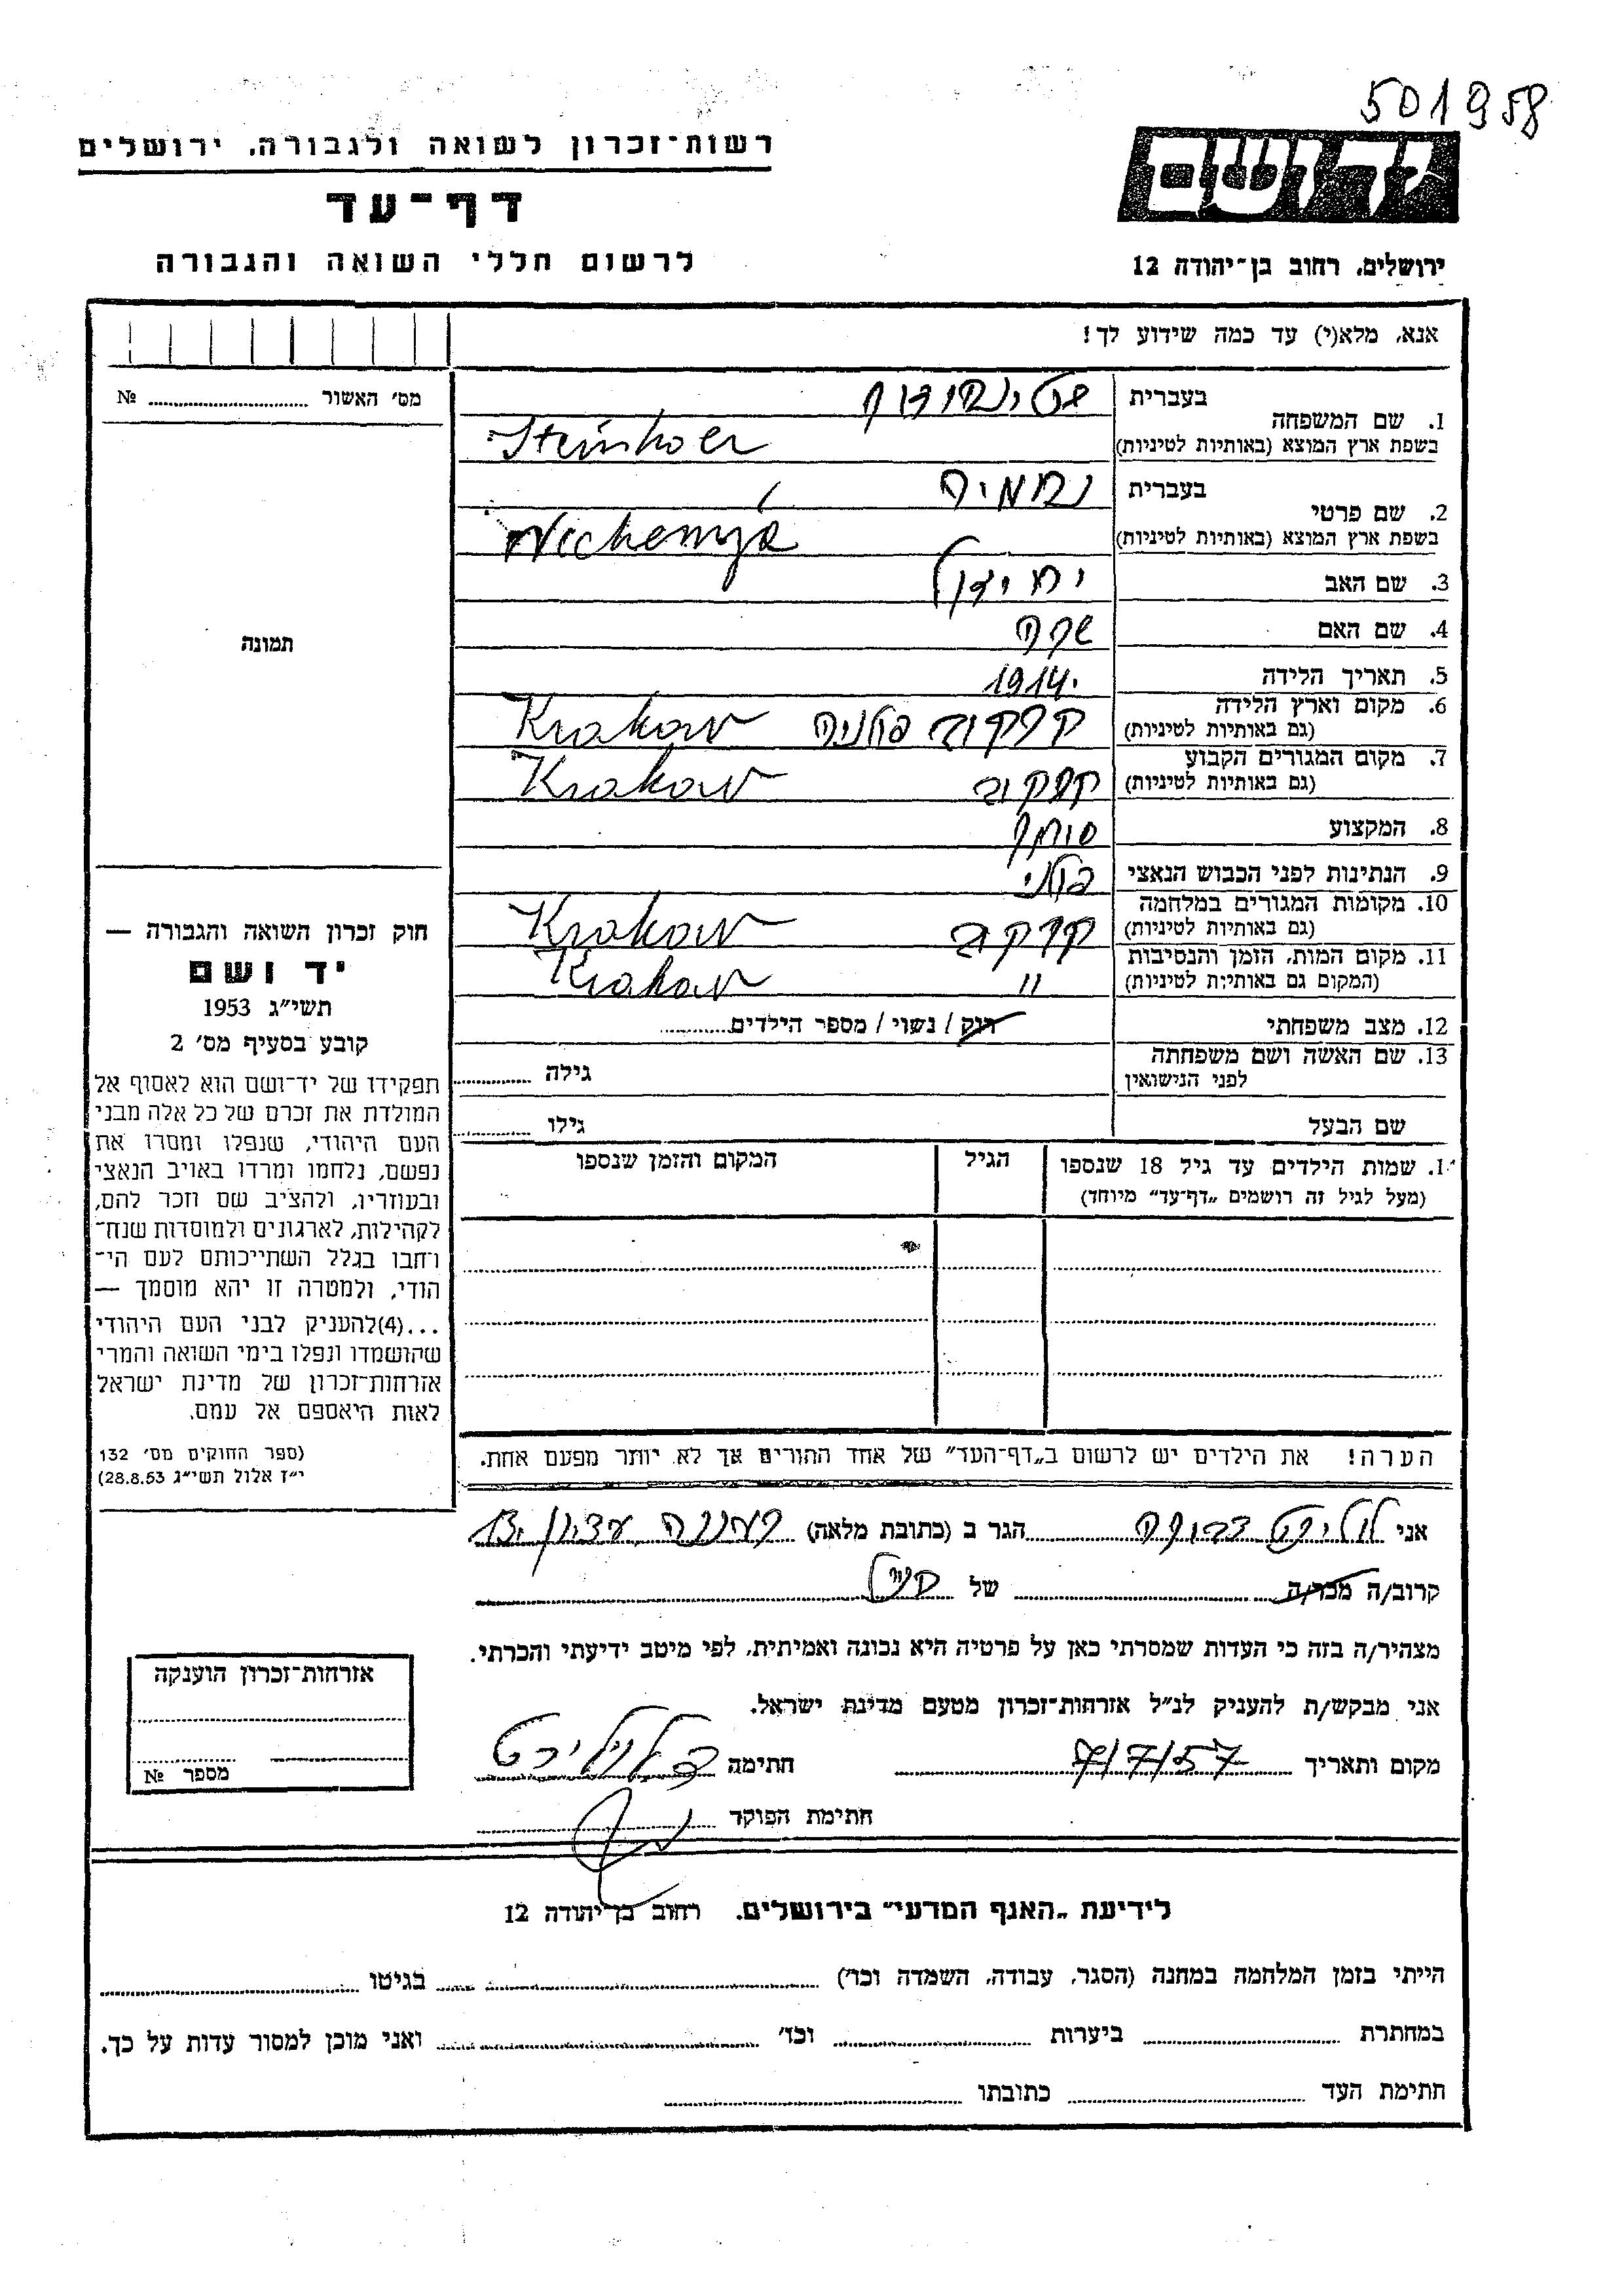 501958
רשות־זכרון לשואה ולגבורה, ירושלים
דף־עד
לרשום חללי השואה והגבורה
יד ושם
ירושלים, רחוב בן־יהודה 12
אנא, מלא(י) עד כמה שידוע לך!
מס׳ האשור № ..........
תמונה
1. שם המשפחה
בעברית
בשפת ארץ המוצא (באותיות לטיניות)
2. שם פרטי
בעברית נחמיה
בשפת ארץ המוצא (באותיות לטיניות) Nechemja
3. שם האב
4. שם האם שרה
5. תאריך הלידה 1914
6. מקום וארץ הלידה קרקוב פולניה Krakow
(גם באותיות לטיניות)
7. מקום המגורים הקבוע קרקוב Krakow
(גם באותיות לטיניות)
8. המקצוע סוחר
9. הנתינות לפני הכבוש הנאצי פולני
10. מקומות המגורים במלחמה קרקוב Krakow
(גם באותיות לטיניות)
11. מקום המות, הזמן והנסיבות " Krakow
(המקום גם באותיות לטיניות)
12. מצב משפחתי רוק / נשוי / מספר הילדים..........
13. שם האשה ושם משפחתה גילה ..........
לפני הנישואין
שם הבעל גילו ..........
1. שמות הילדים עד גיל 18 שנספו הגיל המקום והזמן שנספו
(מעל לגיל זה רושמים „דף־עד״ מיוחד)
הערה! את הילדים יש לרשום ב„דף־העד״ של אחד ההורים אך לא יותר מפעם אחת.
חוק זכרון השואה והגבורה —
יד ושם
תשי״ג 1953
קובע בסעיף מס׳ 2
תפקידו של יד־ושם הוא לאסוף אל
המולדת את זכרם של כל אלה מבני
העם היהודי, שנפלו ומסרו את
נפשם, נלחמו ומרדו באויב הנאצי
ובעוזריו, ולהציב שם וזכר להם,
לקהילות, לארגונים ולמוסדות שנח־
רחבו בגלל השתייכותם לעם הי־
הודי, ולמטרה זו יהא מוסמך —
...(4)להעניק לבני העם היהודי
שהושמדו ונפלו בימי השואה והמרי
אזרחות־זכרון של מדינת ישראל
לאות היאספם אל עמם.
(ספר החוקים מס׳ 132
י״ז אלול תשי״ג 28.8.53)
אני דבורה הגר ב (כתובת מלאה)
קרוב/ה מכר/ה .......... של
מצהיר/ה בזה כי העדות שמסרתי כאן על פרטיה היא נכונה ואמיתית, לפי מיטב ידיעתי והכרתי.
אני מבקש/ת להעניק לנ״ל אזרחות־זכרון מטעם מדינת ישראל.
מקום ותאריך 7/7/57 חתימה
חתימת הפוקד
אזרחות־זכרון הוענקה
מספר №
לידיעת „האגף המדעי״ בירושלים. רחוב בן־יהודה 12
הייתי בזמן המלחמה במחנה (הסגר, עבודה, השמדה וכו׳) .......... בגיטו ..........
במחתרת .......... ביערות .......... וכד׳ .......... ואני מוכן למסור עדות על כך.
חתימת העד .......... כתובתו ..........